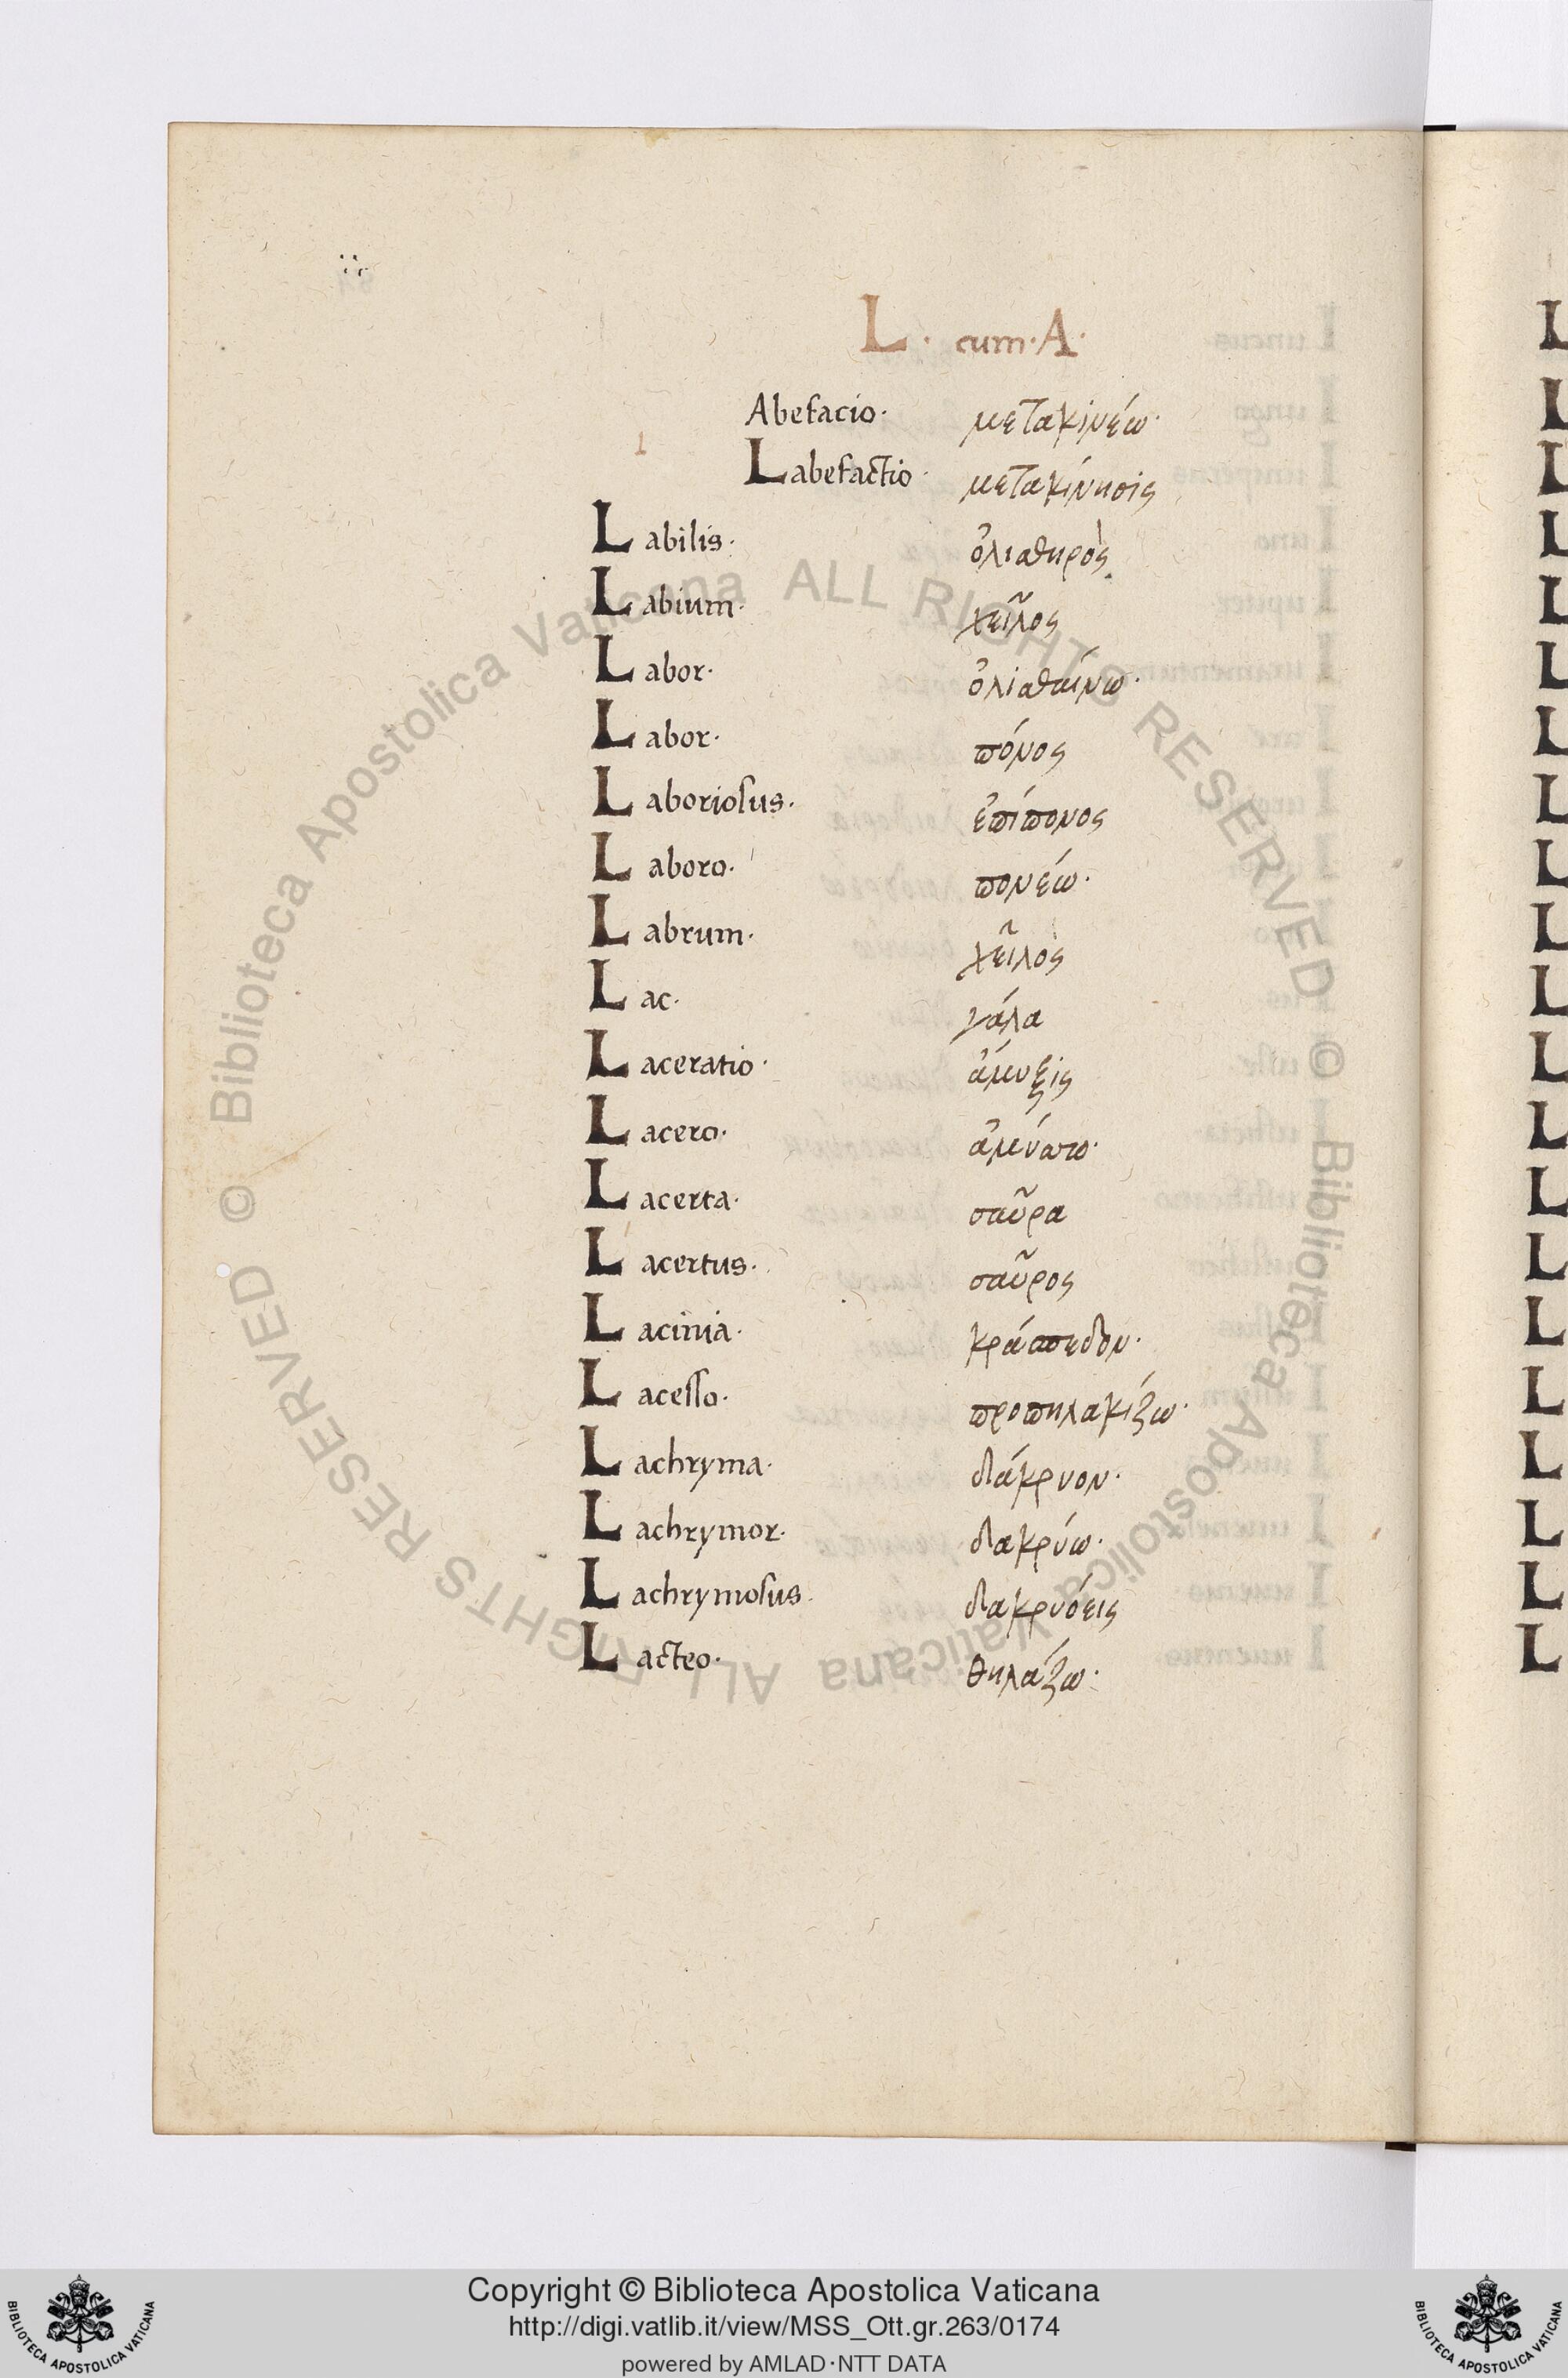 L · cum · A ·
Abefacio · μετακινέω ·
l
Labefactio · μετακίνησις
Labilis · ὀλιαθηρὸς
Labium · χεῖλος
Labor · ὀλιαθαίνω ·
Labor · πόνος
Laboriosus · ἐπίπονος
Laboro · πονέω ·
Labrum · χεῖλος
Lac · γάλα
Laceratio · ἄμυξις
Lacero · ἀμύατω ·
Lacerta · σαῦρα
Lacertus · σαῦρος
Lacinia · κράασπεδον ·
Lacesso · προπηλακίζω ·
Lachryma · δάκρυον ·
Lachrymor · δακρύω ·
Lachrymosus · δακρυόεις
Lacteo · θηλάζω ·
© Biblioteca Apostolica Vaticana ALL RIGHTS RESERVED © Biblioteca Apostolica Vaticana ALL RIGHTS RESERVED
Copyright © Biblioteca Apostolica Vaticana
http://digi.vatlib.it/view/MSS_Ott.gr.263/0174
powered by AMLAD·NTT DATA
BIBLIOTECA APOSTOLICA VATICANA
BIBLIOTECA APOSTOLICA VATICANA